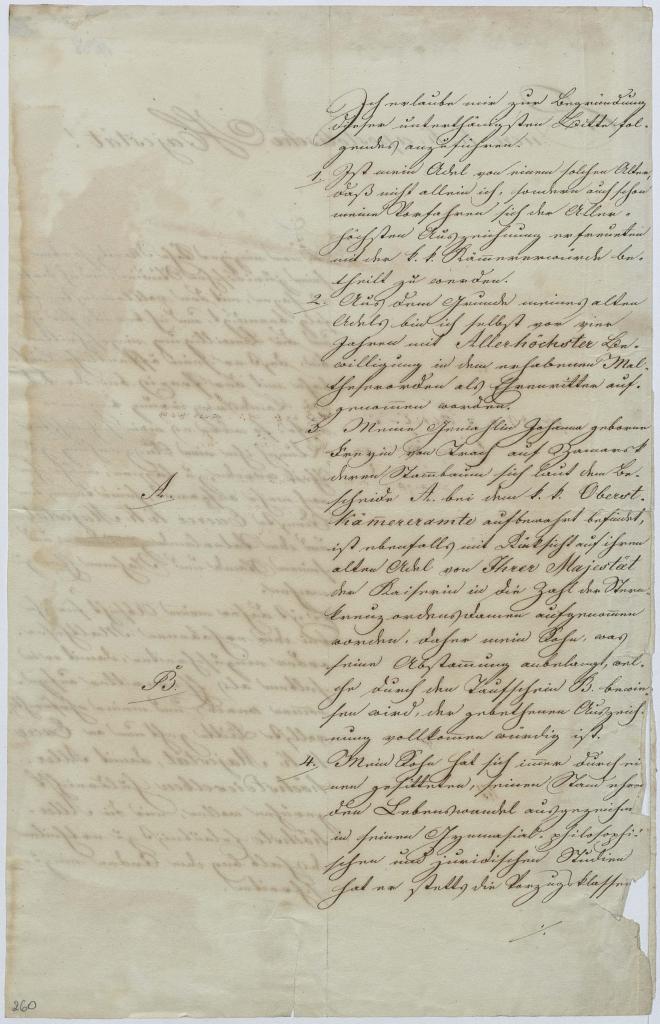 Ich erlaube mir zur Begründung
dieser unterthänigsten Bitte fol-
gendes anzuführen.
1. Ist mein Adel von einem solchen Alter,
daß nicht allein ich, sondern auch schon
meine Vorfahren sich der Aller-
höchsten Auszeichnung erfreueten
mit der k. k. Kämmererwürde be-
theilt zu werden.
2. Aus dem Grunde meines alten
Adels bin ich selbst vor vier
Jahren mit Allerhöchster Be-
willigung in dem erhabenen Mal-
theserorden als Ehrenritter auf-
genommen worden.
3. Meine Gemahlin Johanna geborne
Freyin von Trach auf
deren Stammbaum sich laut dem Be-
A.
scheide A. bei dem k. k. Oberst-
kämmereramte aufbewahrt befindet,
ist ebenfalls mit Rüksicht auf ihren
alten Adel von Ihrer Majestät
der Kaiserin in die Zahl der Stern-
kreuzordensdamen aufgenommen
worden, daher mein Sohn, was
seine Abstammung anbelangt, wel-
B.
che durch den Taufschein B. bewie-
sen wird, der gebethenen Auszeich-
nung vollkommen würdig ist.
4. Mein Sohn hat sich immer durch ei
nen gesitteten, seinen Stand ehren
den Lebenswandel ausgezeichn
in seinen Gymnasial- philosophi-
schen und juridischen Studien
hat er stetts die Vorzugsklassen
./.
260